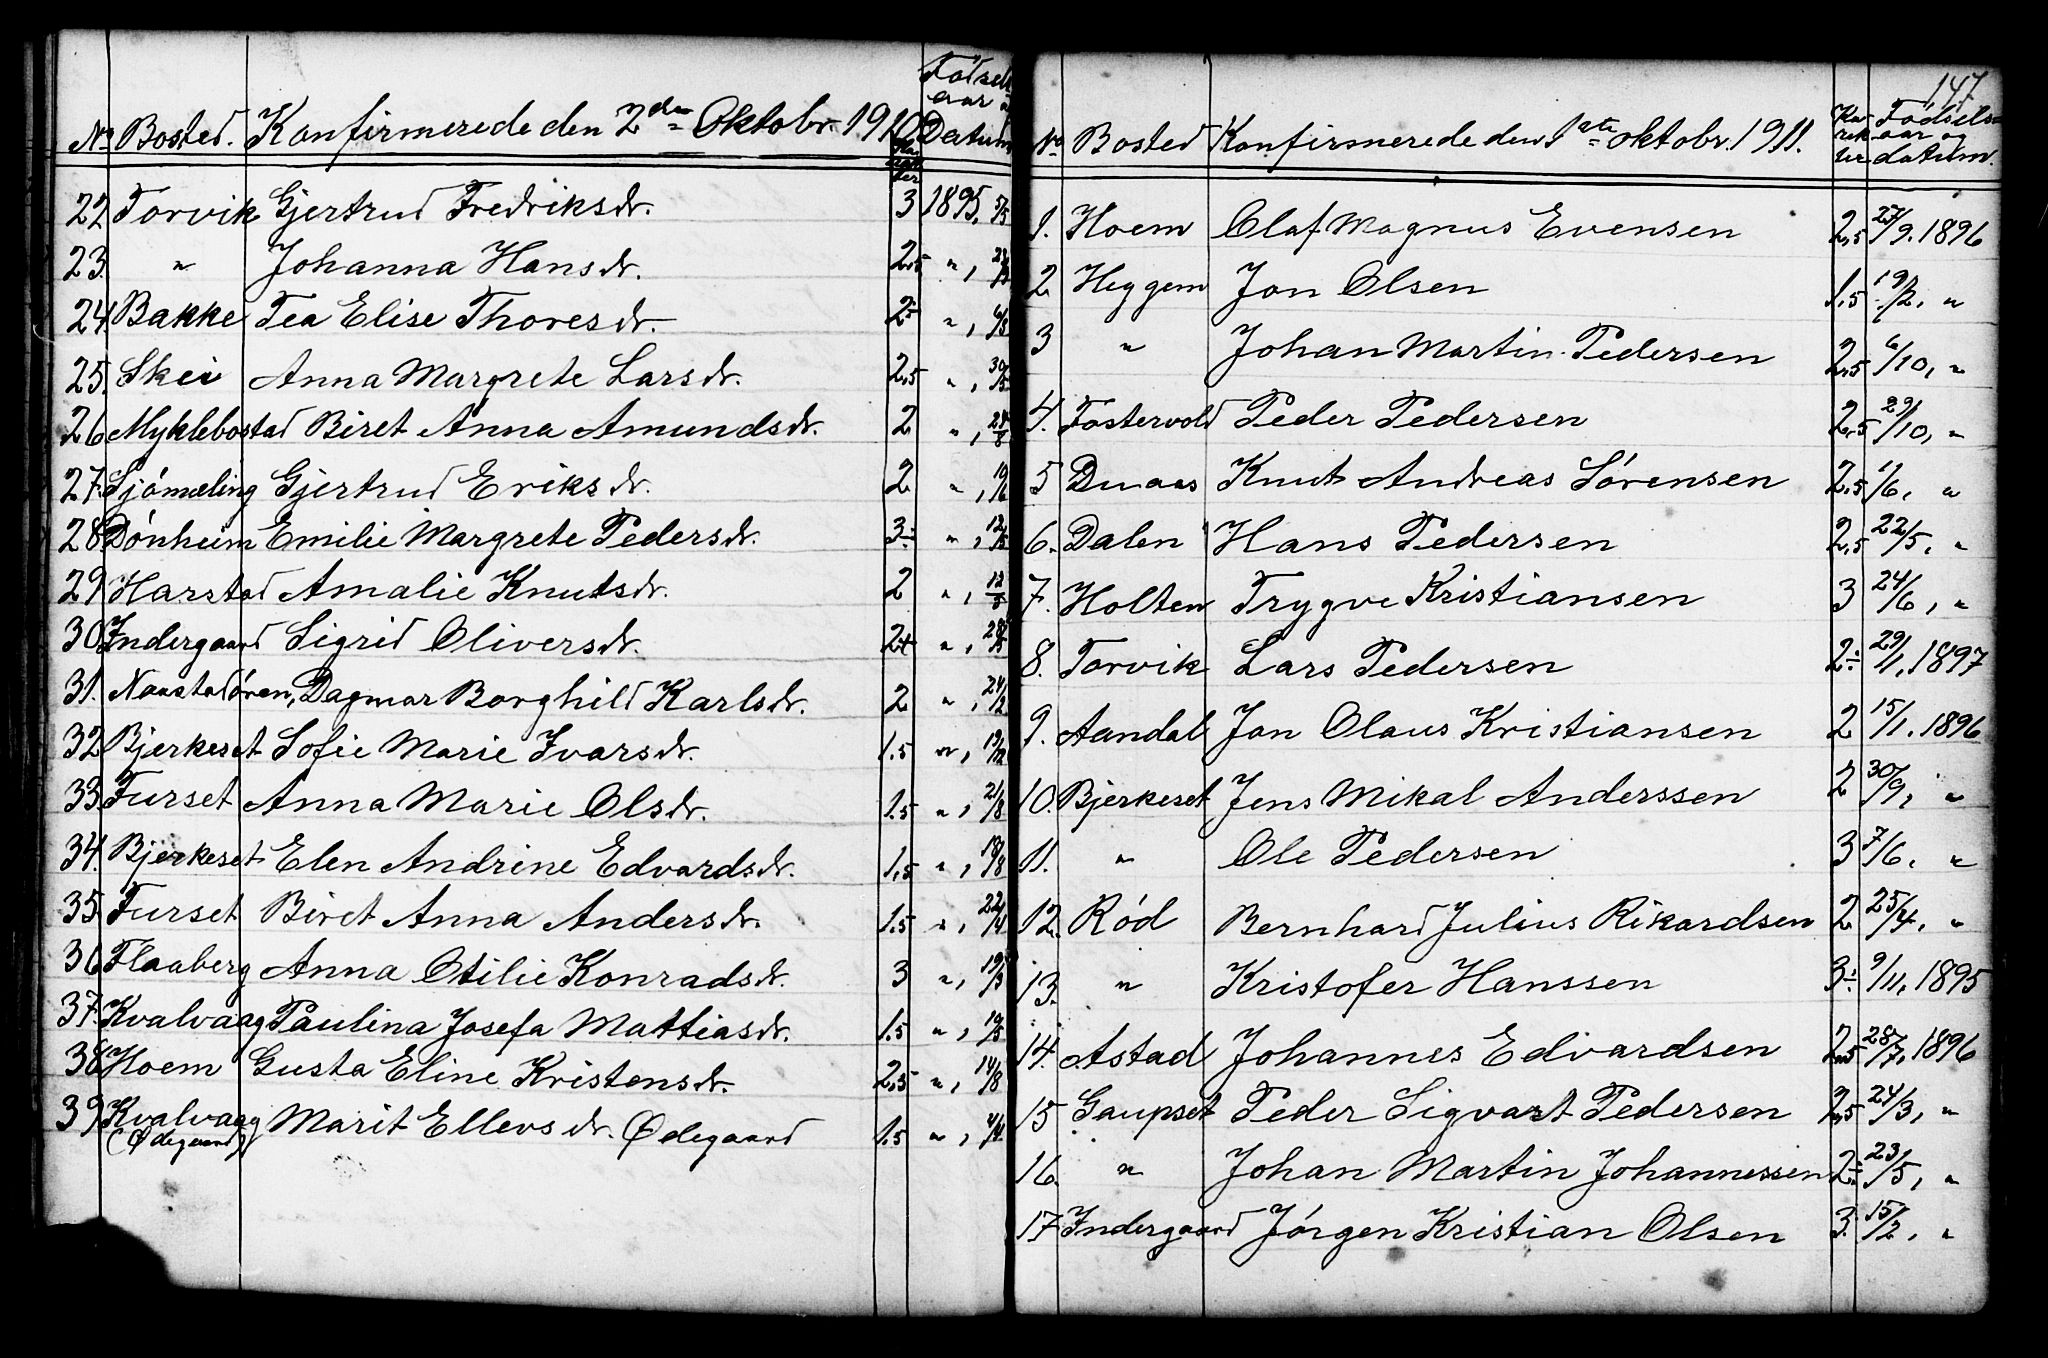 No Bosted. Konfirmerede den 2den Oktobr. 1910 Ka-rak-ter Fødsels aar Datum
22 Torvik Gjertrud Fredriksdr. 3 1895, 5/5
23. " Johanna Hansdr. 2.5 ",
24. Bakke Tea Elise Thoresdr. 2 ÷ ",
25. Skei Anna Margrete Larsdr. 2,5 ", 30/5
26 Myklebostad Biret Anna Amundsdr. 2 ", 24/8
27. Sjømæling Gjertrud Eriksdr. 2 ", 19/6
28. Dønheim Emilie Margrete Pedersdr. 3÷ ", 12/5
29 Harstad Amalie Knutsdr. 2 ",
30 Indergaard Sigrid Oliversdr. 2+ ",
31. Naastadøren, Dagmar Borghild Karlsdr. 2 ", 24/2
32 Bjerkeset Sofie Marie Ivarsdr. 1.5 ", 13/12
33. Furset Anna Marie Olsdr. 1.5 ", 21/8
34. Bjerkeset Elen Andrine Edvardsdr. 1,5 ", 18/8
35. Furset Biret Anna Andersdr. 1.5 ",
36 Flaaberg Anna Otilie Konradsdr. 3 ", 19/3
37. Kvalvaag Paulina Josefa Mattiasdr. 1.5 ", 19/5
38 Hoem Gusta Eline Kristensdr. 2,5 ", 14/8
39 Kvalvaag Marit Ellevsdr. Ødegaard 1.5 ", 4/4.
(Ødegaard)
147
No Bosted Konfirmerede den 1ste oktobr. 1911. Ka-rak-ter Fødsels-aar og datum.
1. Hoem Olaf Magnus Evensen 2,5 27/9. 1896
2 Heggem Jon Olsen 1.5 19/2, "
3 " Johan Martin Pedersen 2,5 6/10, "
4. Fostervold Peder Pedersen 2.5 29/10, "
5 Duaas Knut Andreas Sørensen 2,5 1/6, "
6. Dalen Hans Pedersen 2,5 22/5, "
7. Holten Trygve Kristiansen 3 24/6, "
8. Torvik Lars Pedersen 2÷ 29/1, 1897
9. Aandal Jon Olaus Kristiansen 2 15/1. 1896
10. Bjerkeset Jens Mikal Anderssen 2 30/9, "
11. " Ole Pedersen 3 7/6. "
12. Rød Bernhard Julius Rikardsen 2 25/4, "
13. " Kristofer Hanssen 3÷ 9/11, 1895
14. Astad Johannes Edvardsen 2,5 28/7, 1896
15 Gaupset Peder Sigvart Pedersen 2,5 24/3, "
16. " Johan Martin Johannessen 2÷ 23/5, "
17 Indergaard Jørgen Kristian Olsen 3. 15/2, "